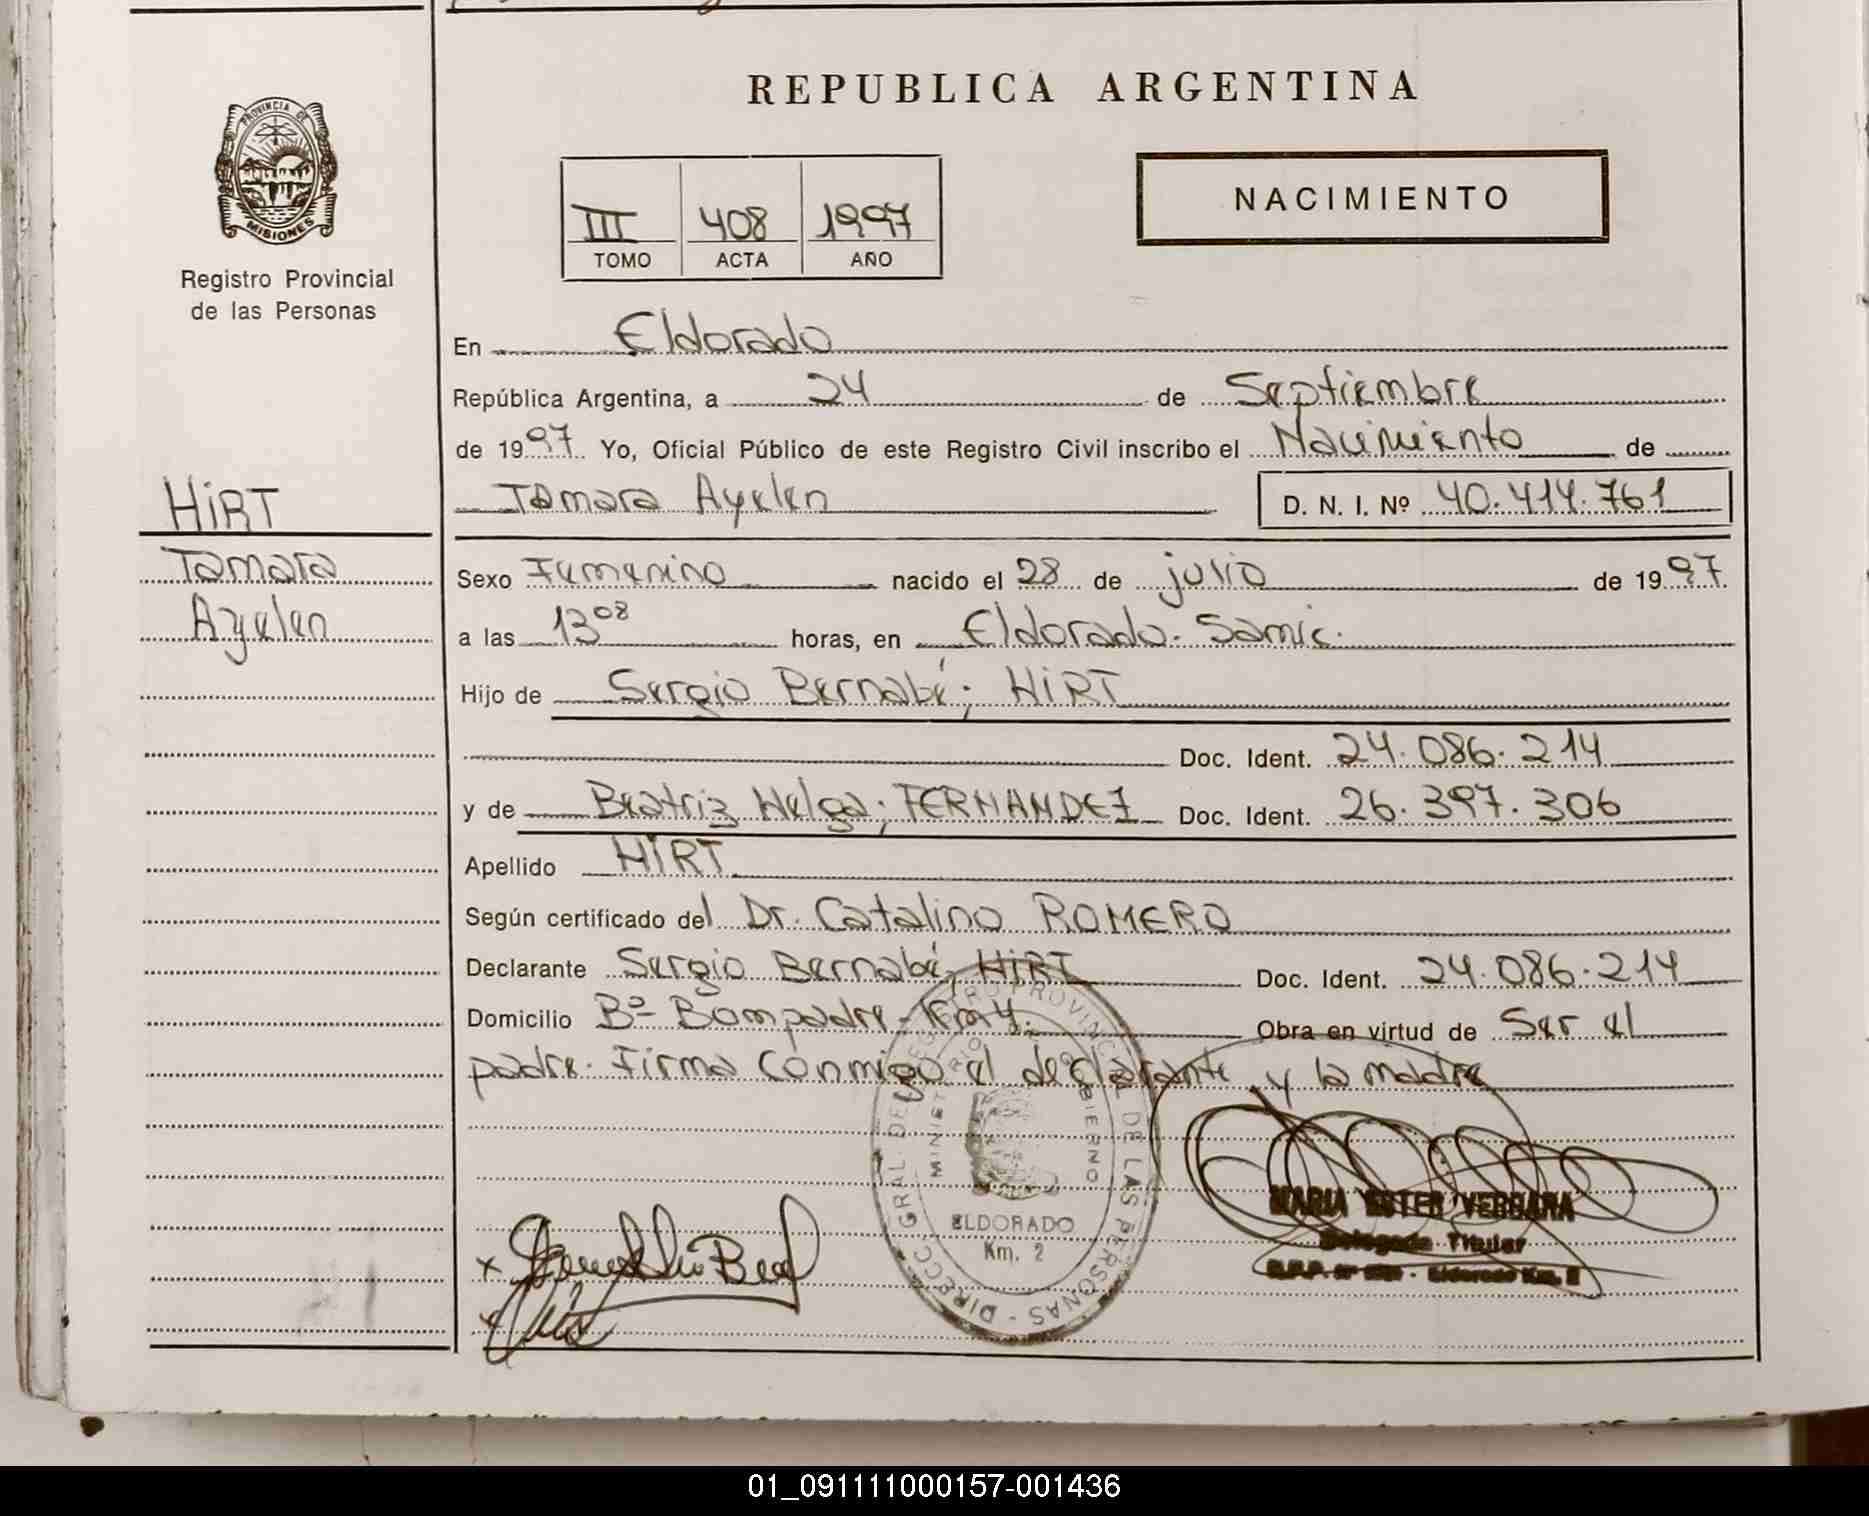 REPUBLICA ARGENTINA
PROVINCIA DE
MISIONES
Registro Provincial
de las Personas
III 408 1997
TOMO ACTA AÑO
NACIMIENTO
En Eldorado
República Argentina, a 24 de Septiembre
de 1997 Yo, Oficial Público de este Registro Civil inscribo el Nacimiento de
Tamara Ayelen D. N. I. Nº 40.414.761
HIRT
Tamara
Ayelen
Sexo Femenino nacido el 28 de julio de 1997
a las 13 08 horas, en Eldorado. Samic.
Hijo de Sergio Bernabé; HIRT
Doc. Ident. 24.086.214
y de Beatriz Helga; FERNANDEZ Doc. Ident. 26.397.306
Apellido HIRT
Según certificado del Dr. Catalino ROMERO
Declarante Sergio Bernabé, HIRT Doc. Ident. 24.086.214
Domicilio Bº Bompadre - Km 4. Obra en virtud de Ser el
padre. Firma conmigo el declarante y la madre
DIRECC. GRAL. DEL REGISTRO PROVINCIAL DE LAS PERSONAS
MINISTERIO DE GOBIERNO
ELDORADO
Km. 2
MARIA ESTER VERGARA
Delegada Titular
Eldorado Km. 2
01_091111000157-001436